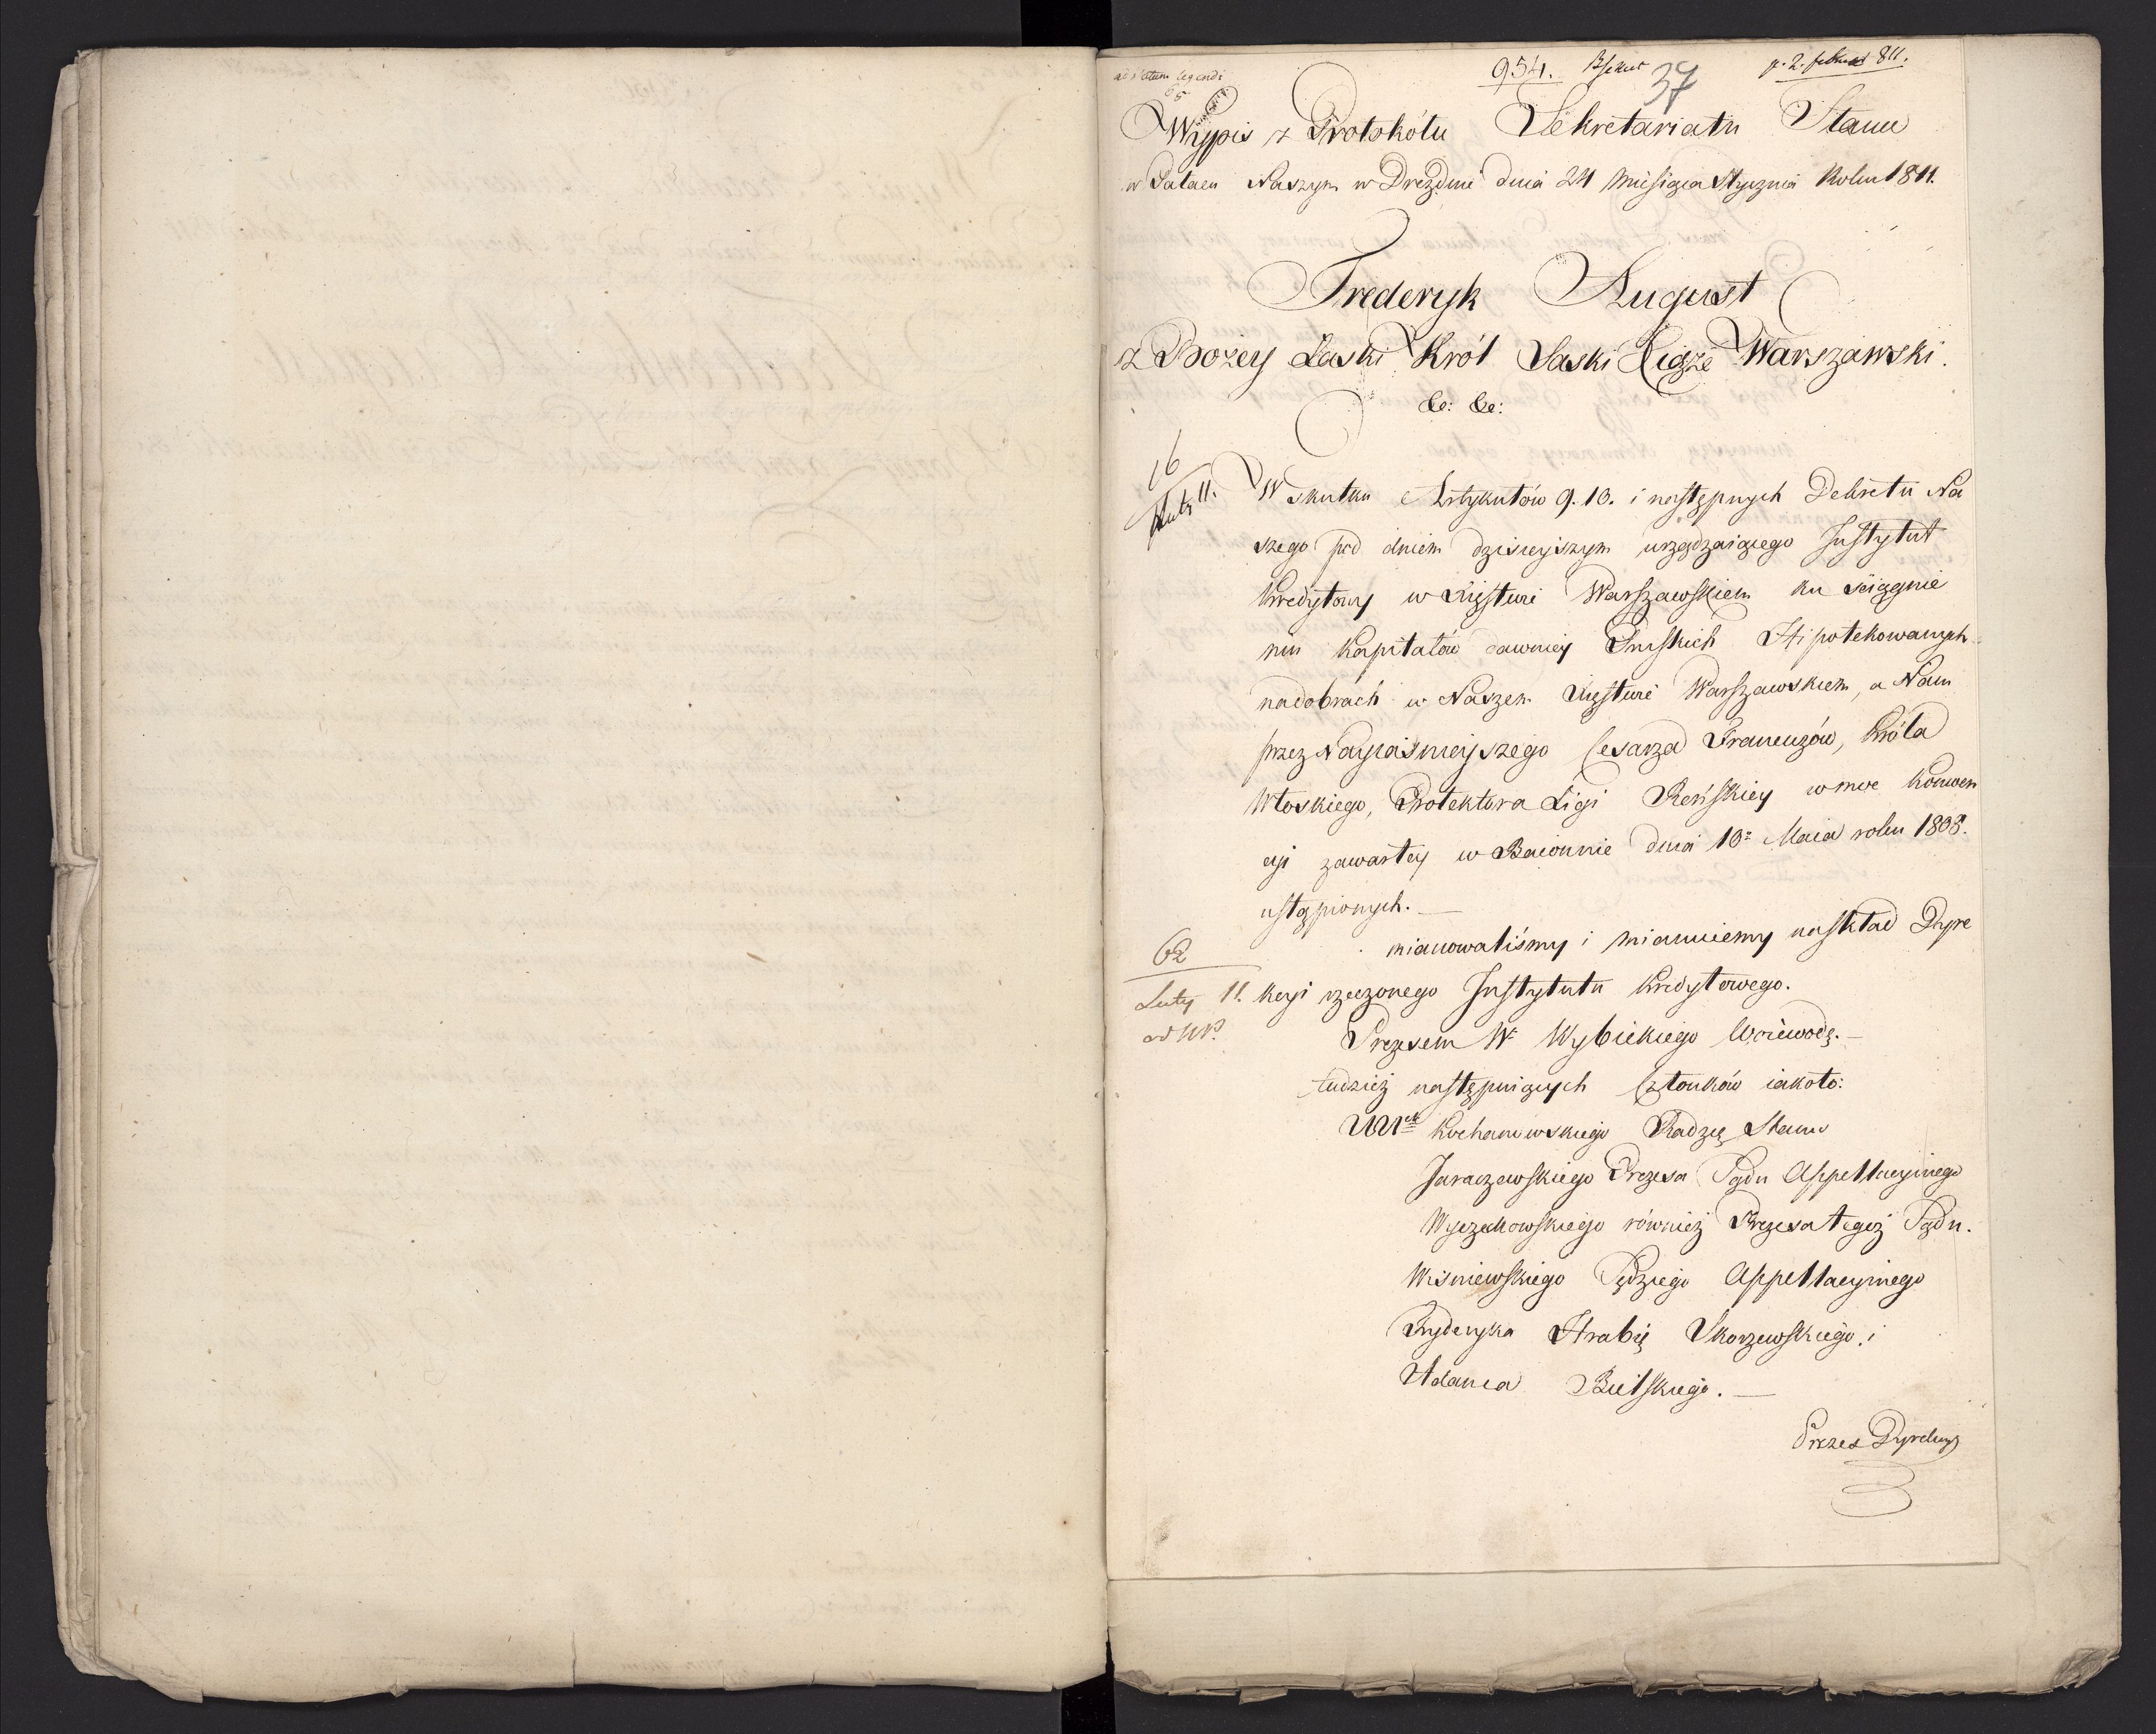 ad statum legendi
65
954.
37
p. 2. febr 811.
Wypis z Protokółu Sekretariatu Stanu
w Pałacu Naszym w Dreźnie dnia 24 Miesiąca Stycznia Roku 1811.
Frederyk August
z Bożey Łaski Król Saski Xiąże Warszawski.
&c: &c:
16
Luty 11.
W skutku Artykułów 9. 10. i następnych Dekretu Na
szego pod dniem dzisieyszym urządzaiącego Instytut
Kredytowy w Xięstwie Warszawskiem ku ściągnie
niu Kapitałów dawniey Pruskich Hipotekowanych
na dobrach w Naszem Xięstwie Warszawskiem, a Nam
przez Nayiaśnieyszego Cesarza Francuzów, Króla
Włoskiego, Protektora Ligi Reńskiey w moc Konwen
cyi zawartey w Baionnie dnia 10º Maia roku 1808.
ustąpionych. —
mianowaliśmy i mianuiemy na skład Dyre
62
Luty 11.
kcyi rzeczonego Instytutu Kredytowego.
Prezesem Wº Wybickiego Woiewodę. —
tudzież następuiących Członków iakoto:
UUch Kochanowskiego Radzcę Stanu
Jaraczewskiego Prezesa Sądu Appellacyinego
Wyczechowskiego również Prezesa tegoż Sądu.
Wiśniewskiego Sędziego Appellacyinego
Fryderyka Hrabię Skorzewskiego, i
Adama Bielskiego. —
Prezes Dyrekcyi